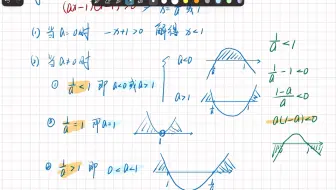 (ax-1)(x-1)>0
(1) 当a=0时 -x+1>0 解得 x<1
(2) 当a≠0时
① 1/a<1 即 a<0 或 a>1
a<0
a>1
② 1/a=1 即a=1
③ 1/a>1 即 0<a<1
1/a<1
1/a-1<0
(1-a)/a<0
a(1-a)<0